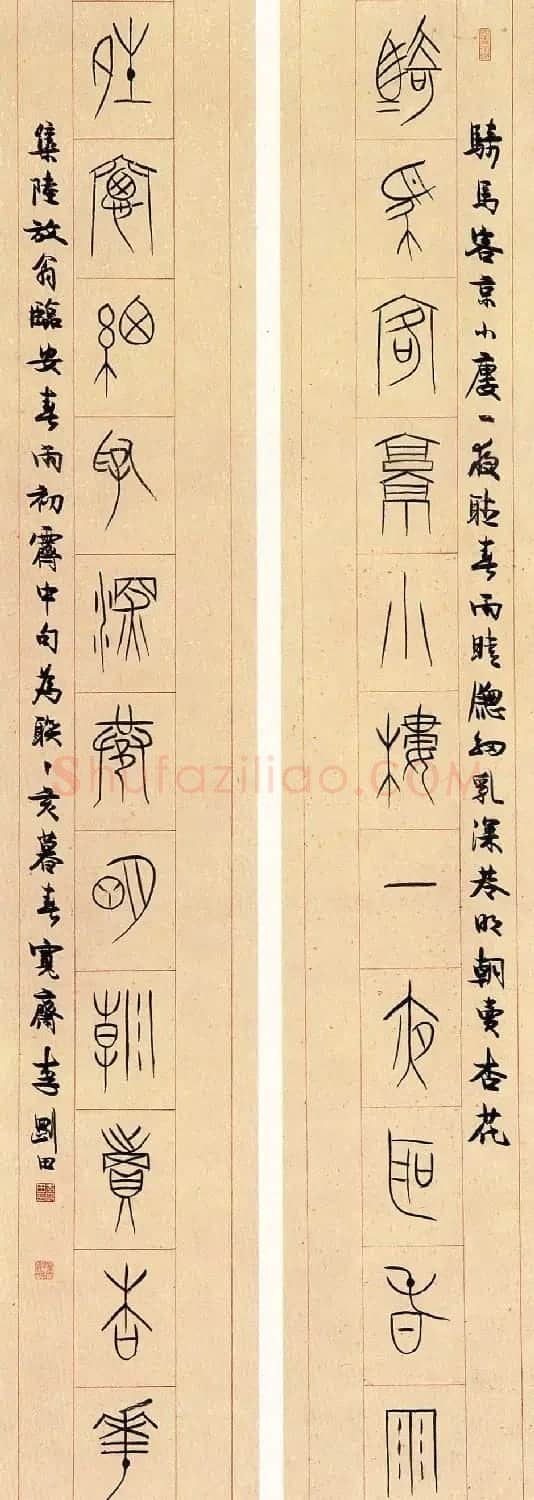 騎馬客京小廔一夜聽春雨晴牕細乳深巷明朝賣杏花
騎馬客京小樓一夜聽春雨
晴窗細乳深巷明朝賣杏華
集陸放翁臨安春雨初霽中句為聯丁亥暮春寬齋李剛田
Shufaziliao.COM